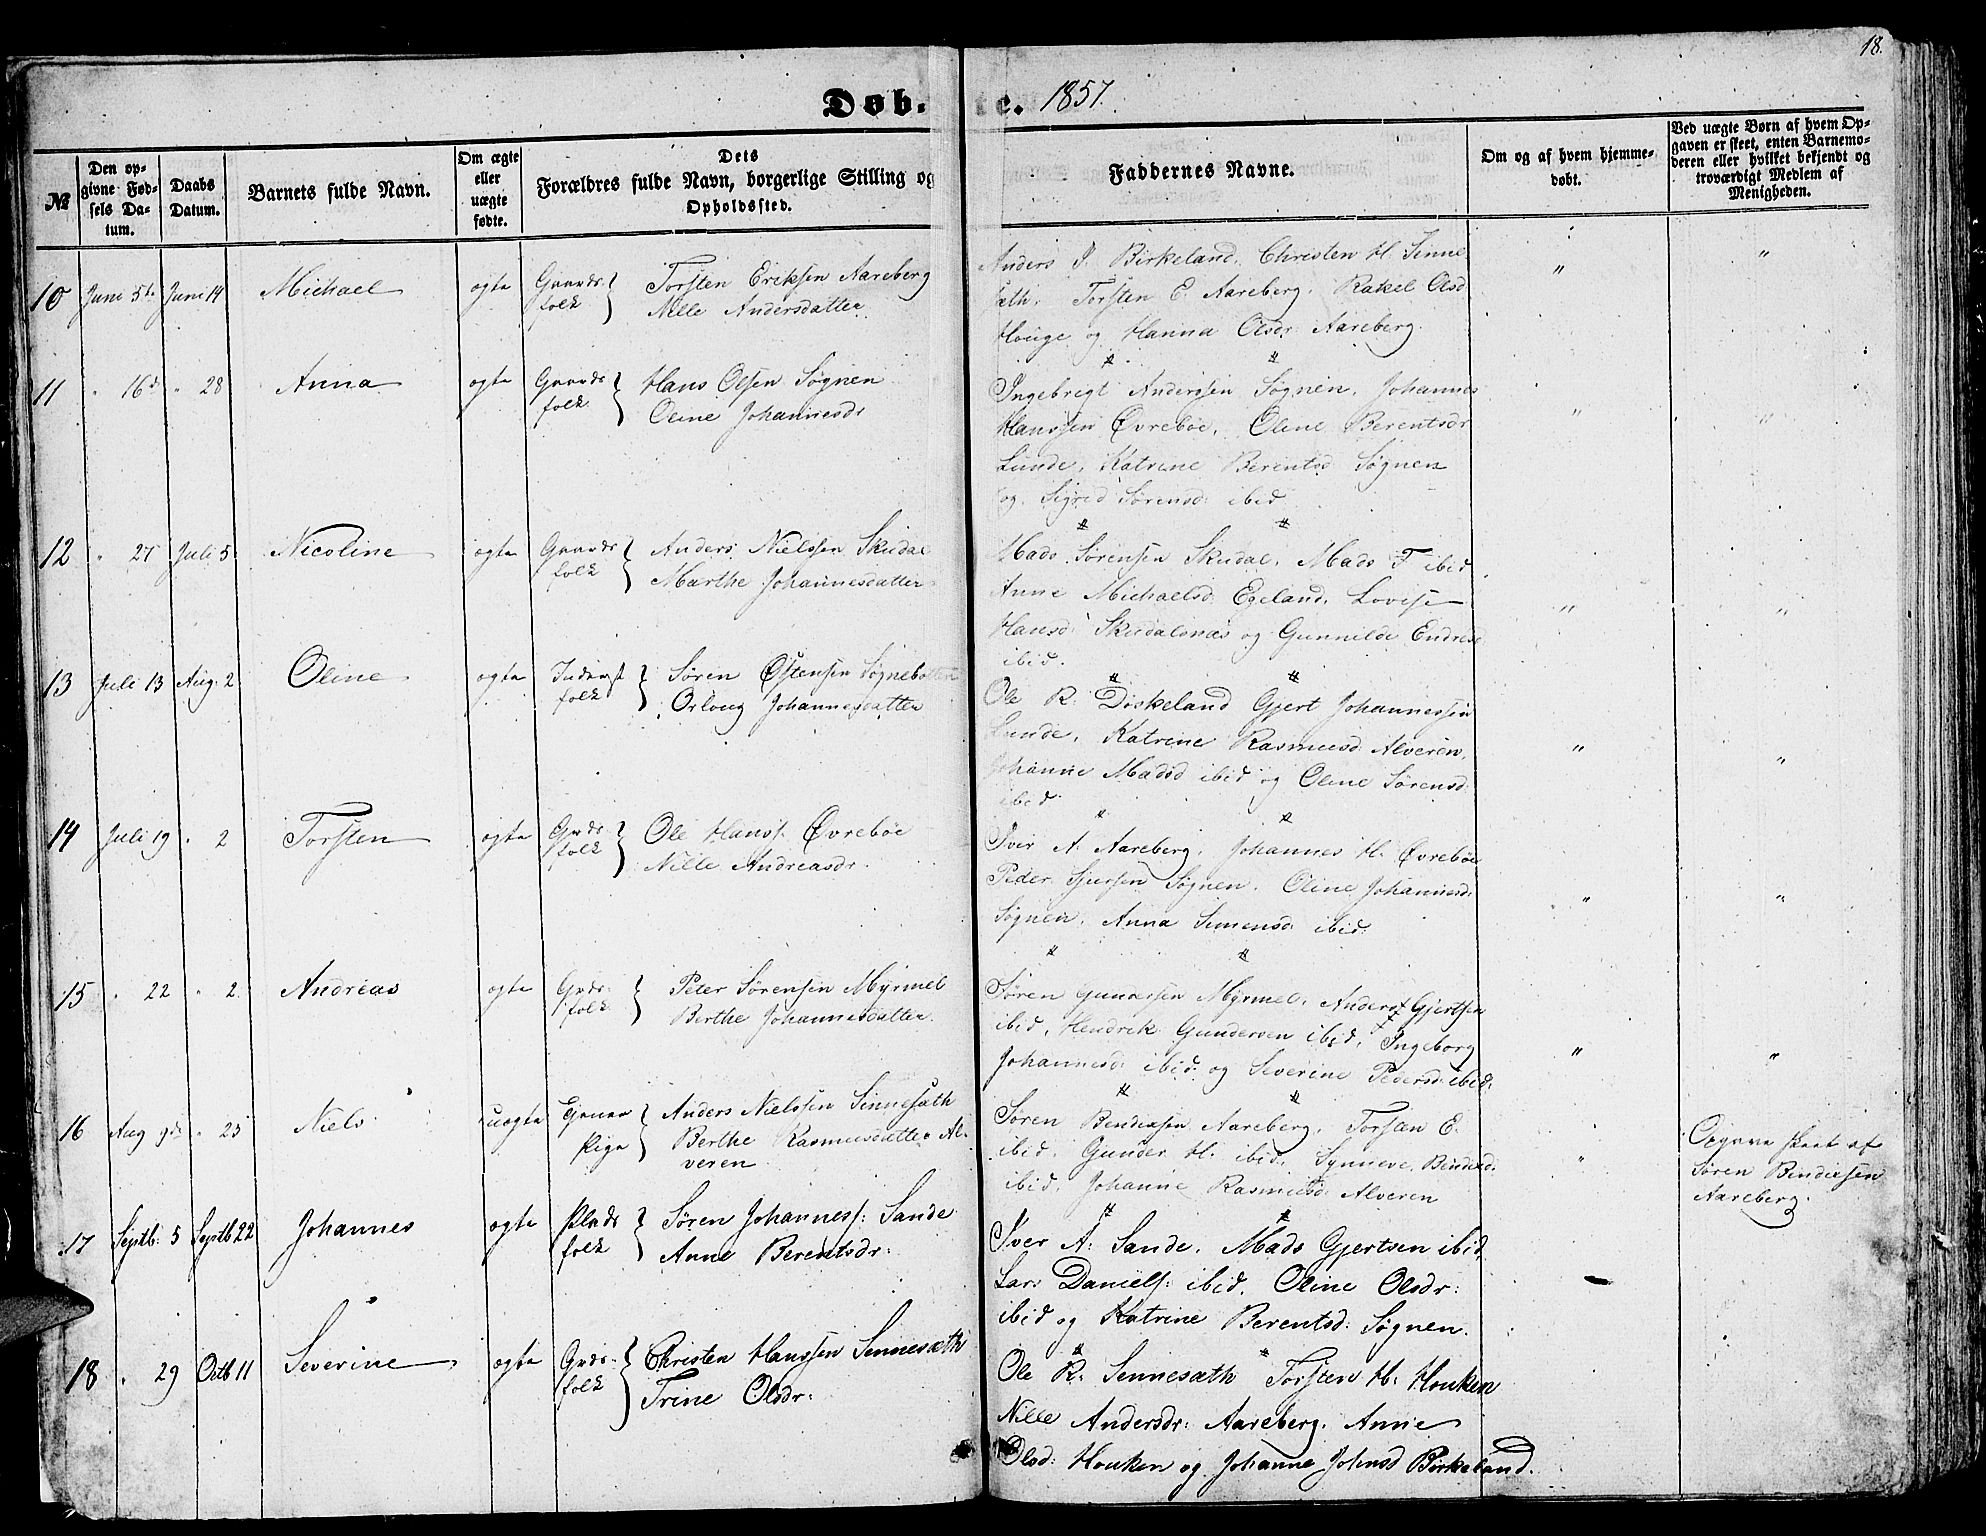 18.
Døbte. 1857.
№
Den opgivne Fødsels Datum.
Daabs Datum.
Barnets fulde Navn.
Om ægte eller uægte fødte.
Dets Forældres fulde Navn, borgerlige Stilling og Opholdssted.
Faddernes Navne.
Om og af hvem hjemmedøbt.
Ved uægte Børn af hvem Opgaven er skeet, enten Barnemoderen eller hvilket bekjendt og troværdigt Medlem af Menigheden.
10 Juni 5te Juni 14 Michael ægte Gaardsfolk } Torsten Eriksen Aareberg
Nille Andersdatter
Anders J. Birkeland, Christen H. Sinne
sath, Torsten E. Aareberg, Rakel Olsd
Houge og Hanna Olsdr Aareberg.
11 " 16d " 28 Anna ægte Gaardsfolk } Hans Olsen Søgnen
Oline Johannesdr
Ingebregt Anderssen Søgnen, Johannes
Hanssen Øvrebøe, Oline Berentsdr
Lunde, Katrine Berentsd Søgnen
og Sigrid Sørensd: ibid
12 " 27 Juli 5 Nicoline ægte Gaardsfolk } Anders Nielssen Skudal
Marthe Johannesdatter
Mads Sørensen Skudal, Mads T ibid
Anne Michaelsd: Egeland, Lovise
Hansd: Skudalsnæs og Gunnilde Endresd
ibid.
13 Juli 13 Aug. 2 Oline ægte Inderstfolk } Søren Østensen Søgnebotten
Orloug Johannesdatter
Ole R. Døskeland Gjert Johannessen
Lunde, Katrine Rasmusd Alveren,
Johanne Madsd ibid og Oline Sørensd
ibid
14 Juli 19 " 2 Torsten ægte Grdsfolk } Ole Hanss. Øvrebøe
Nille Andreasdr.
Iver A. Aareberg, Johannes H. Øvrebøe
Peder Sjursen Søgnen, Oline Johannesd:
Søgnen, Anna Simensd: ibid:
15 " 22 " 2 Andreas ægte Grdsfolk } Peter Sørensen Myrmel
Berthe Johannesdatter.
Søren Gundersen Myrmel, Anders Gjertsen
ibid, Hendrik Gundersen ibid, Ingeborg
Johannesd: ibid og Severine Pedersd: ibid:
16 Aug 9de " 23 Niels uægte Pige } Anders Nielssen Sinnesath
Berthe Rasmusdatter Al-
veren
Søren Bendixsen Aareberg, Torsten E.
ibid, Gunder H. ibid, Synneve Bendixd:
ibid, Johanne Rasmusd: Alveren
Opgave skeet af
Søren Bendixsen
Aareberg.
17 Septb: 5 Septb 22 Johannes ægte Pladsfolk } Søren Johanness: Sande
Anne Berentsdr:
Iver A: Sande, Mads Gjertsen ibid,
Lars Daniels: ibid, Oline Olsdr:
ibid og Katrine Berentsd: Søgnen.
18 " 29 Octb 11 Severine ægte Grdsfolk } Christen Hanssen Sennesæth
Trine Olsdr:
Ole R: Sennesæth Torsten H: Houken
Nille Andersdr: Aareberg, Anne
Olsd: Houken og Johanne Johnsd Birkeland.